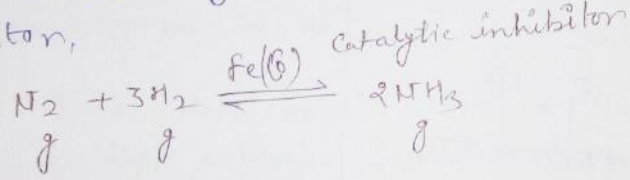 tor,
Catalytic inhibitor
Fe(G)
N2 + 3H2 ⇌ 2NH3
g g g